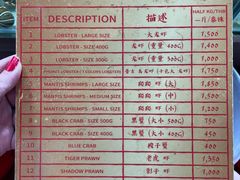 ITEM DESCRIPTION 描述 HALF KG/THB
一斤/泰株
1 LOBSTER - LARGE SIZE 大龙虾 1,500
2 LOBSTER - SIZE 400G 龙虾 (重量 400G) 1,400
3 LOBSTER - SIZE 300G 龙虾 (重量 300G)
4 PHUKET LOBSTER 7 COLORS LOBSTERS 1,750
5 MANTIS SHRIMPS - LARGE SIZE (大)
6 MANTIS SHRIMPS - MEDIUM SIZE (中) 1,500
7 MANTIS SHRIMPS - SMALL SIZE (小) 1,200
8 BLACK CRAB - SIZE 500G 黑蟹 (大小 500G) 750
9 BLACK CRAB - SIZE 400G 黑蟹 (重量 400G) 650
10 BLUE CRAB 梭子蟹 400
11 TIGER PRAWN 老虎虾 1,350
12 SHADOW PRAWN 影子虾 1,000